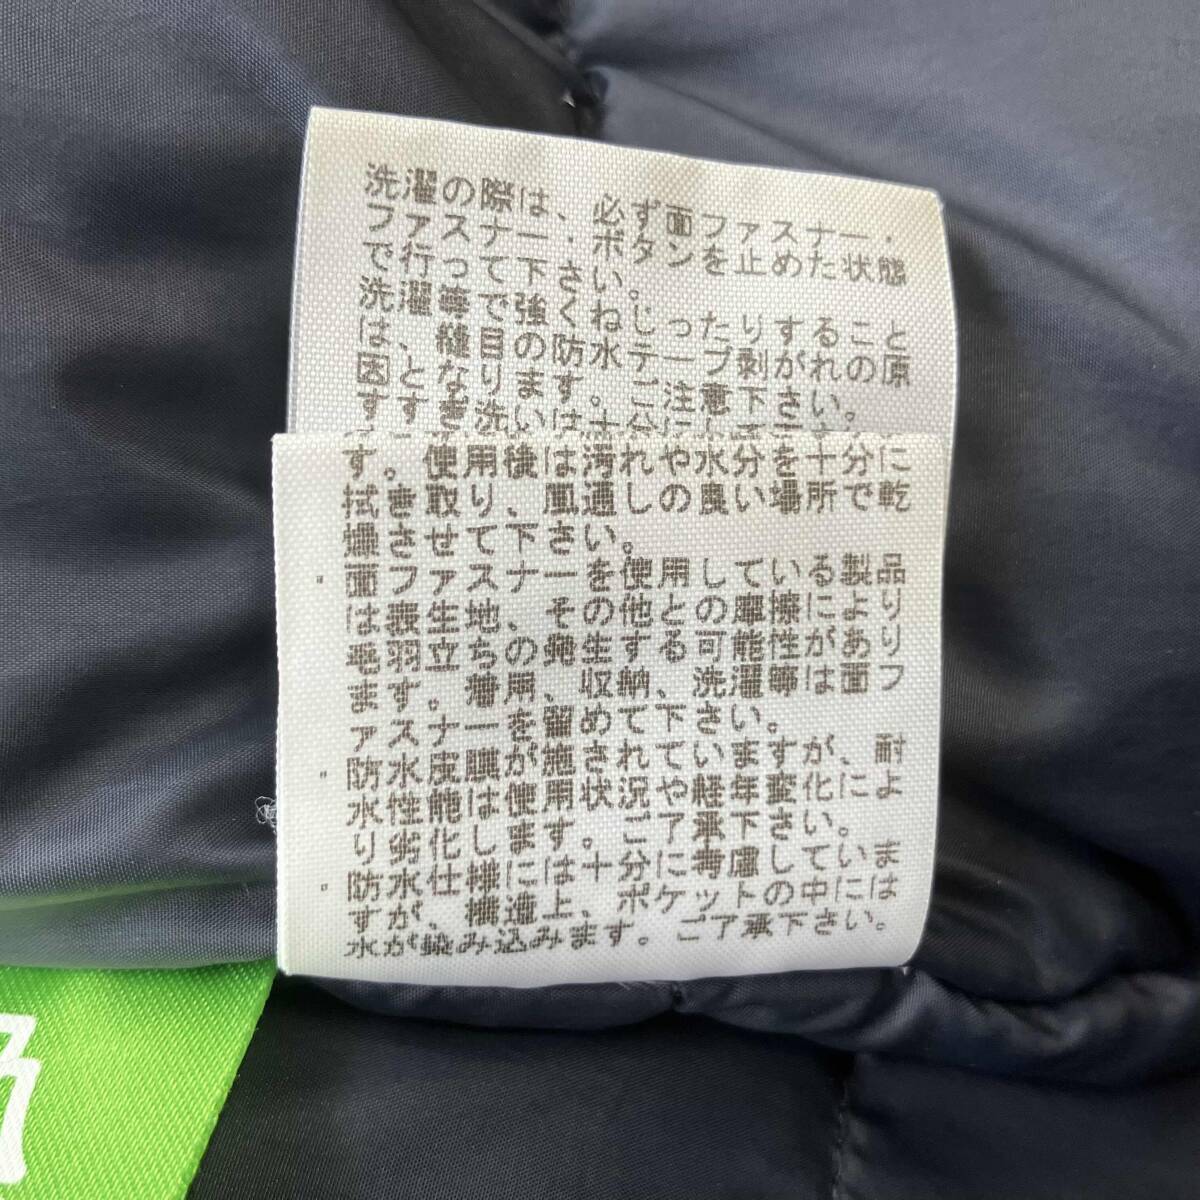 洗濯の際は、必ず面ファスナー・
ファスナー・ボタンを止めた状態
で行って下さい。
洗濯等で強くねじったりすること
は、縫目の防水テープ剥がれの原
因となります。ご注意下さい。
す。使用後は汚れや水分を十分に
拭き取り、風通しの良い場所で乾
燥させて下さい。
・面ファスナーを使用している製品
は表生地、その他との摩擦により
毛羽立ちの発生する可能性があり
ます。着用、収納、洗濯等は面フ
ァスナーを留めて下さい。
・防水皮膜が施されていますが、耐
水性能は使用状況や経年変化によ
り劣化します。ご了承下さい。
・防水仕様には十分に考慮していま
すが、構造上、ポケットの中には
水が染み込みます。ご了承下さい。